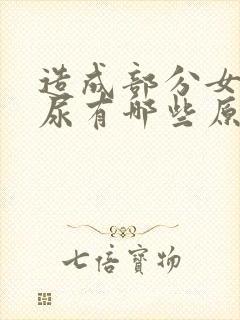 造成部分女
尿有哪些原
七倍寶物